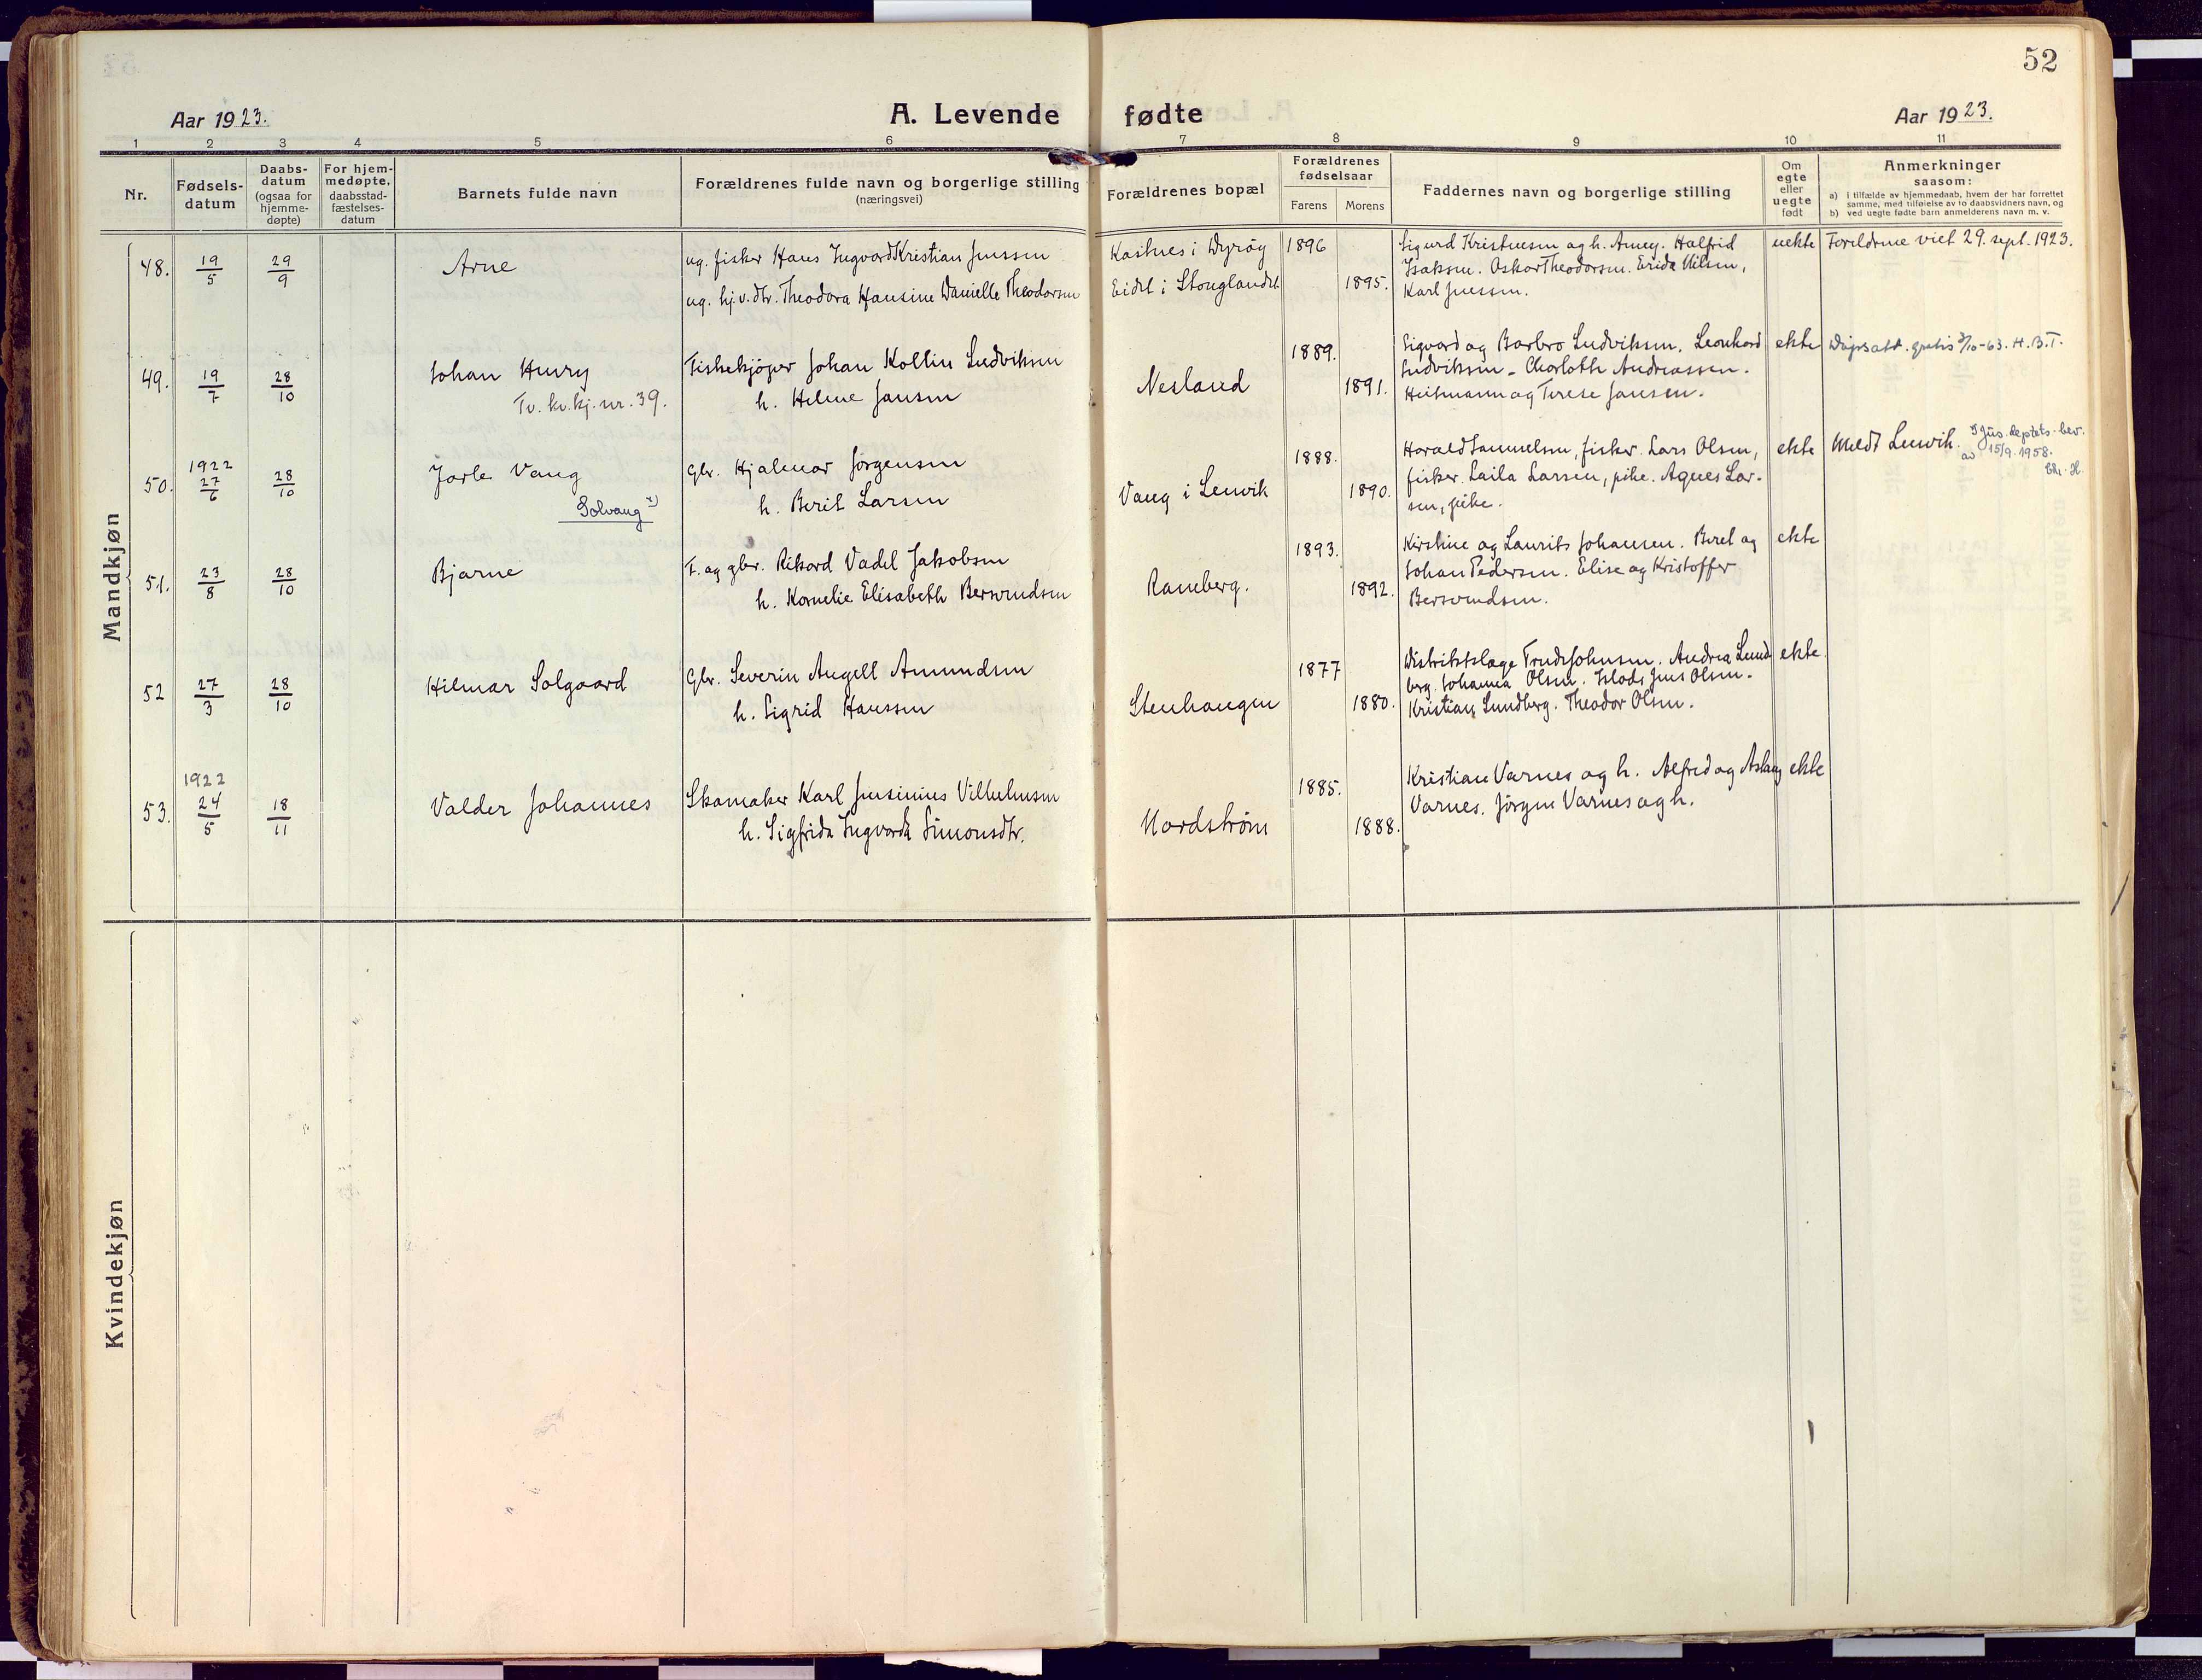 52
Aar 1923.
A. Levende fødte
Aar 1923.
1 2 3 4 5 6 7 8 9 10 11
Nr.
Fødsels-
datum
Daabs-
datum
(ogsaa for
hjemme-
døpte)
For hjem-
medøpte,
daabsstad-
fæstelses-
datum
Barnets fulde navn
Forældrenes fulde navn og borgerlige stilling
(næringsvei)
Forældrenes bopæl
Forældrenes
fødselsaar
Farens Morens
Faddernes navn og borgerlige stilling
Om
egte
eller
uegte
født
Anmerkninger
saasom:
a) i tilfælde av hjemmedaab, hvem der har forrettet
samme, med tilføielse av to daabsvidners navn, og
b) ved uegte fødte barn anmelderens navn m. v.
Mandkjøn
48. 19/5 29/9 Arne
ug. fisker Hans Ingvard Kristian Jenssen
ug. hj.v.dtr. Theodora Hansine Danielle Theodorsen
Kastnes i Dyrøy 1896
Eidet i Stonglandet 1895.
Sigurd Kristensen og h. Anny. Halfrid
Isaksen. Oskar Theodorsen. Erida Nilsen,
Karl Jenssen.
uekte Foreldrene viet 29. sept. 1923.
49. 19/7 28/10 Johan Henry
Tv. kv.kj. nr. 39.
Fiskekjøper Johan Kollin Ludviksen
h. Helene Jansen
Nesland 1889. 1891.
Sigvard og Barbro Ludviksen. Leonhard
Ludviksen - Charloth Andreassen.
Heitmann og Terese Jansen.
ekte Dåpsatt. gratis 3/10-63. H.B.T.
50. 1922 27/6 28/10 Jarle Vang
Solvang x)
Gbr. Hjalmar Jørgensen
h. Berit Larsen
Vang i Lenvik 1888. 1890.
Harald Samuelsen, fisker. Lars Olsen,
fisker. Laila Larsen, pike. Agnes Lar-
sen, pike.
ekte Meldt Lenvik. x) Jus. deptets. bev.
av 15/9. 1958.
51. 23/8 28/10 Bjarne
F. og gbr. Rikard Vadel Jakobsen
h. Kornelie Elisabeth Bersvendsen
Ramberg. 1893. 1892.
Kirstine og Laurits Johansen. Beret og
Johan Pedersen. Elise og Kristoffer
Bersvendsen.
ekte
52 27/3 28/10 Hilmar Solgaard
Gbr. Severin Angell Amundsen
h. Sigrid Hanssen
Stenhaugen 1877 1880.
Distriktslæge Trude Johnsen. Andrea Lund-
berg. Johanna Olsen. Jens Olsen.
Kristian Lundberg. Theodor Olsen.
ekte.
53. 1922 24/5 18/11 Valder Johannes
Skomaker Karl Jensinius Vilhelmsen
h. Sigfrida Ingvarda Simonsdtr.
Nordstrøm 1885. 1888.
Kristian Varnes og h. Alfred og Aslaug
Varnes. Jørgen Varnes og h.
ekte
Kvindekjøn